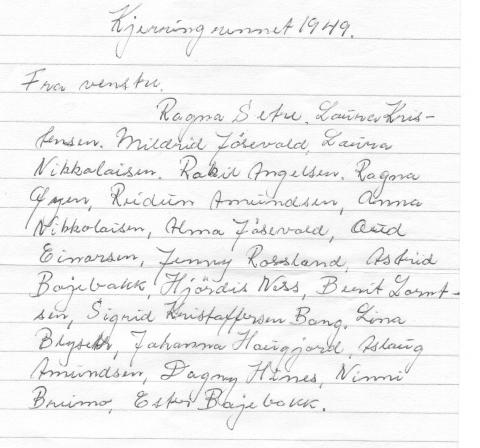 Kjerringrennet 1949.
Fra venstre.
Ragna Setre. Laura Kris-
tensen. Mildrid Jösevold, Laura
Nikkolaisen. Rakil Angelsen. Ragna
Øyen, Reidun Amundsen, Anna
Nikkolaisen, Alma Jösevold, Aud
Einarsen, Jenny Rossland, Astrid
Bøjebakk, Hjördis Ness, Berit Lornt-
sen, Sigrid Kristoffersen Bang. Lina
Johanna Haugjord, Aslaug
Amundsen, Dagny Hines, Ninni
Brumo, Ester Bøjebakk.